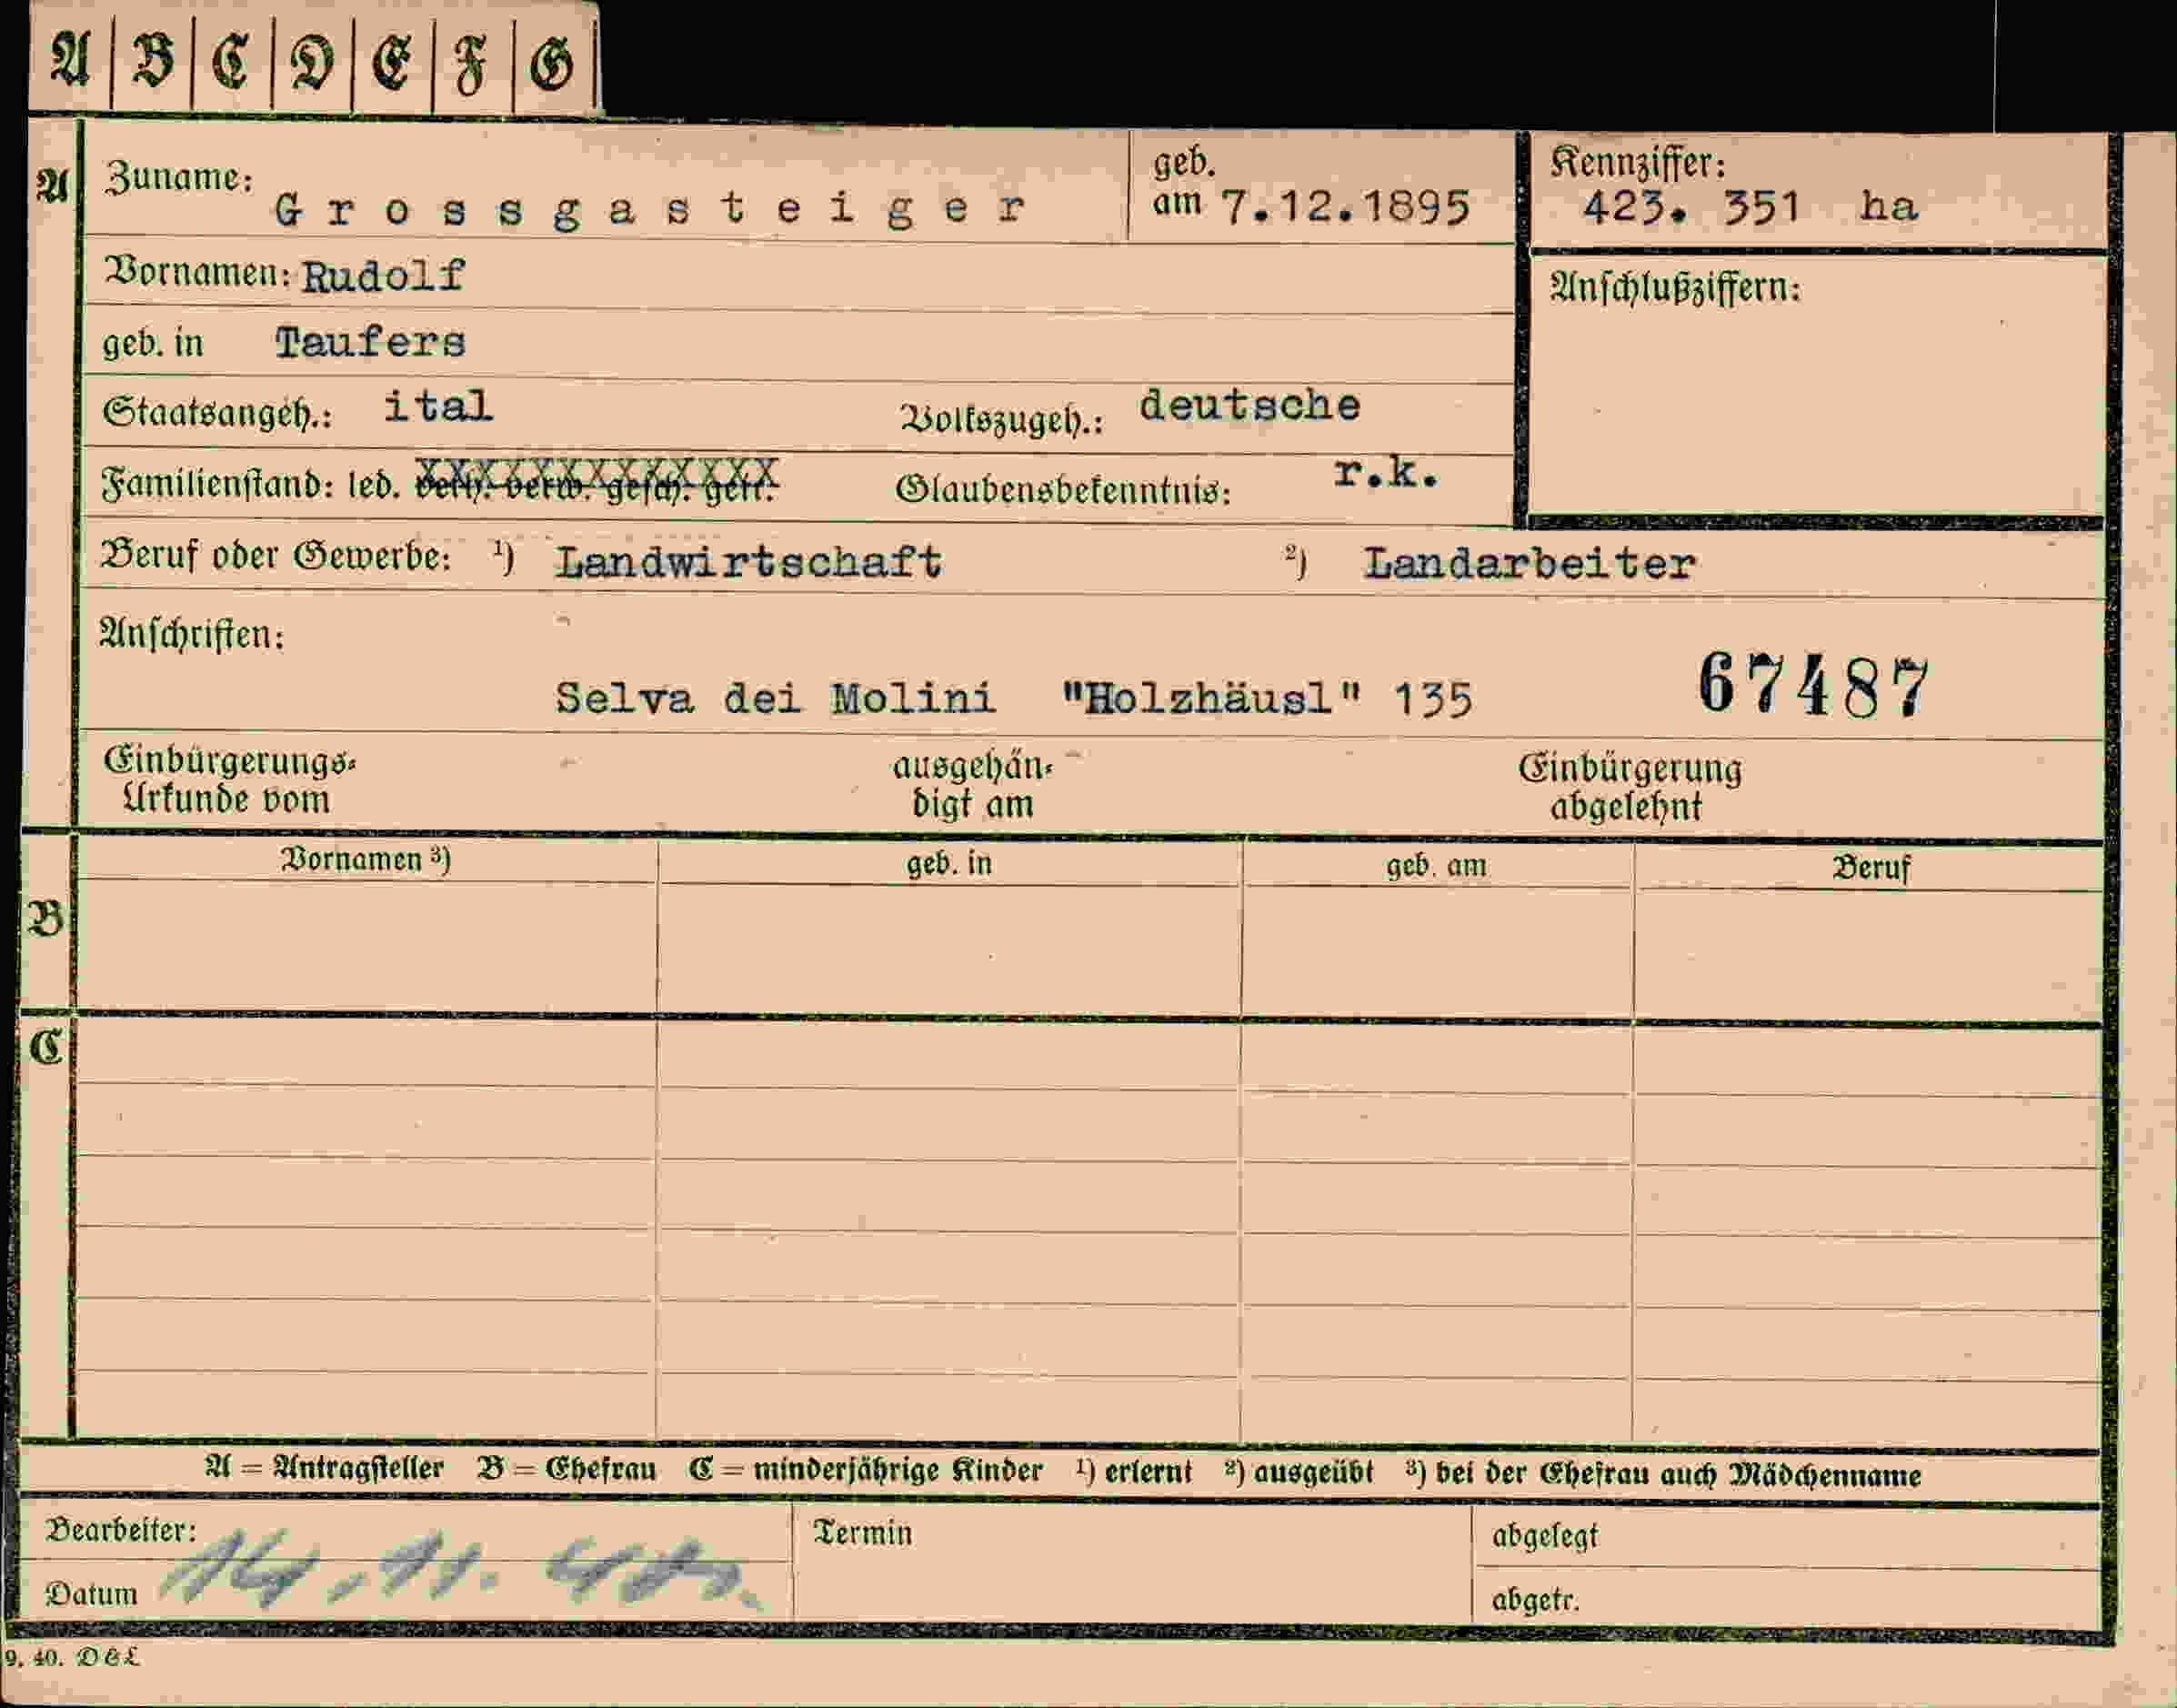 A B C D E F G
A Zuname: Grossgasteiger geb. am 7.12.1895 Kennziffer: 423. 351 ha
Vornamen: Rudolf
Anschlußziffern:
geb. in Taufers
Staatsangeh.: ital Volkszugeh.: deutsche
Familienstand: led. verh. verw. gesch. getr. Glaubensbekenntnis: r.k.
Beruf oder Gewerbe: ¹) Landwirtschaft ²) Landarbeiter
Anschriften:
Selva dei Molini "Holzhäusl" 135 67487
Einbürgerungs- ausgehän- Einbürgerung
Urkunde vom digt am abgelehnt
Vornamen ³) geb. in geb. am Beruf
B
C
A = Antragsteller B = Ehefrau C = minderjährige Kinder ¹) erlernt ²) ausgeübt ³) bei der Ehefrau auch Mädchenname
Bearbeiter: Termin abgelegt
Datum abgetr.
9. 40. D&L